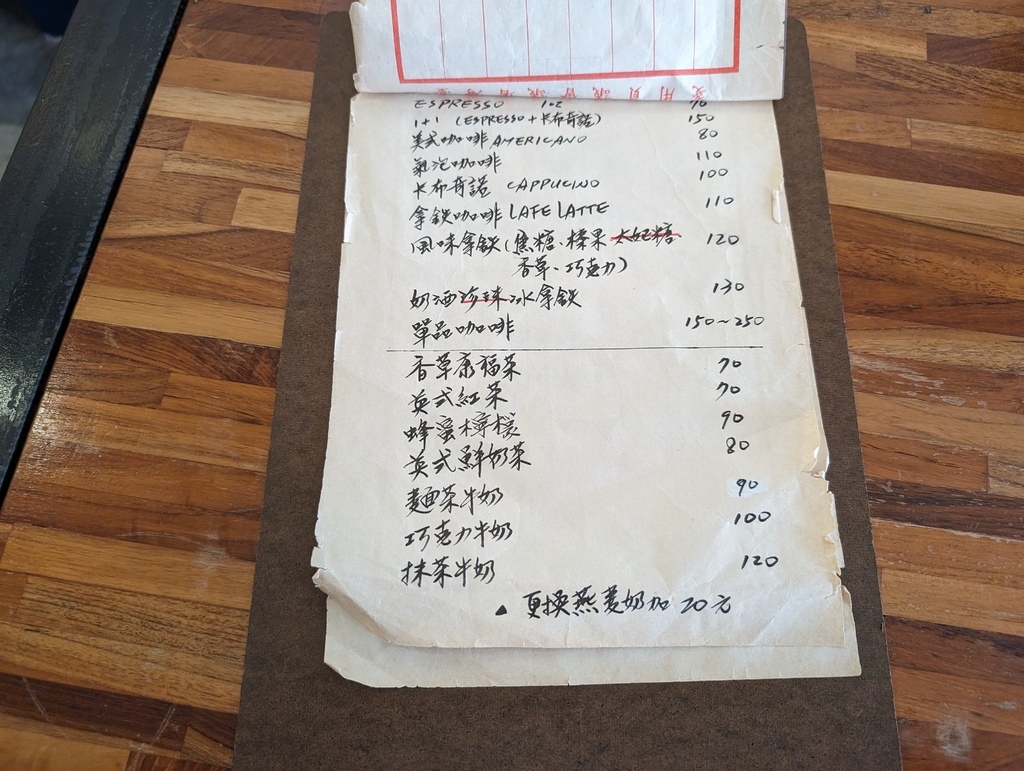 愛用員議會議臺
ESPRESSO 1.2 70
1+1 (ESPRESSO+卡布奇諾) 150
美式咖啡 AMERICANO 80
氣泡咖啡 110
卡布奇諾 CAPPUCINO 100
拿鐵咖啡 LAFE LATTE 110
風味拿鐵(焦糖、榛果 太妃糖 120
香草、巧克力)
奶酒珍珠冰拿鐵 130
單品咖啡 150~250
香草康福茶 70
英式紅茶 70
蜂蜜檸檬 90
英式鮮奶茶 80
麵茶牛奶 90
巧克力牛奶 100
抹茶牛奶 120
▲ 更換燕麥奶加 20元